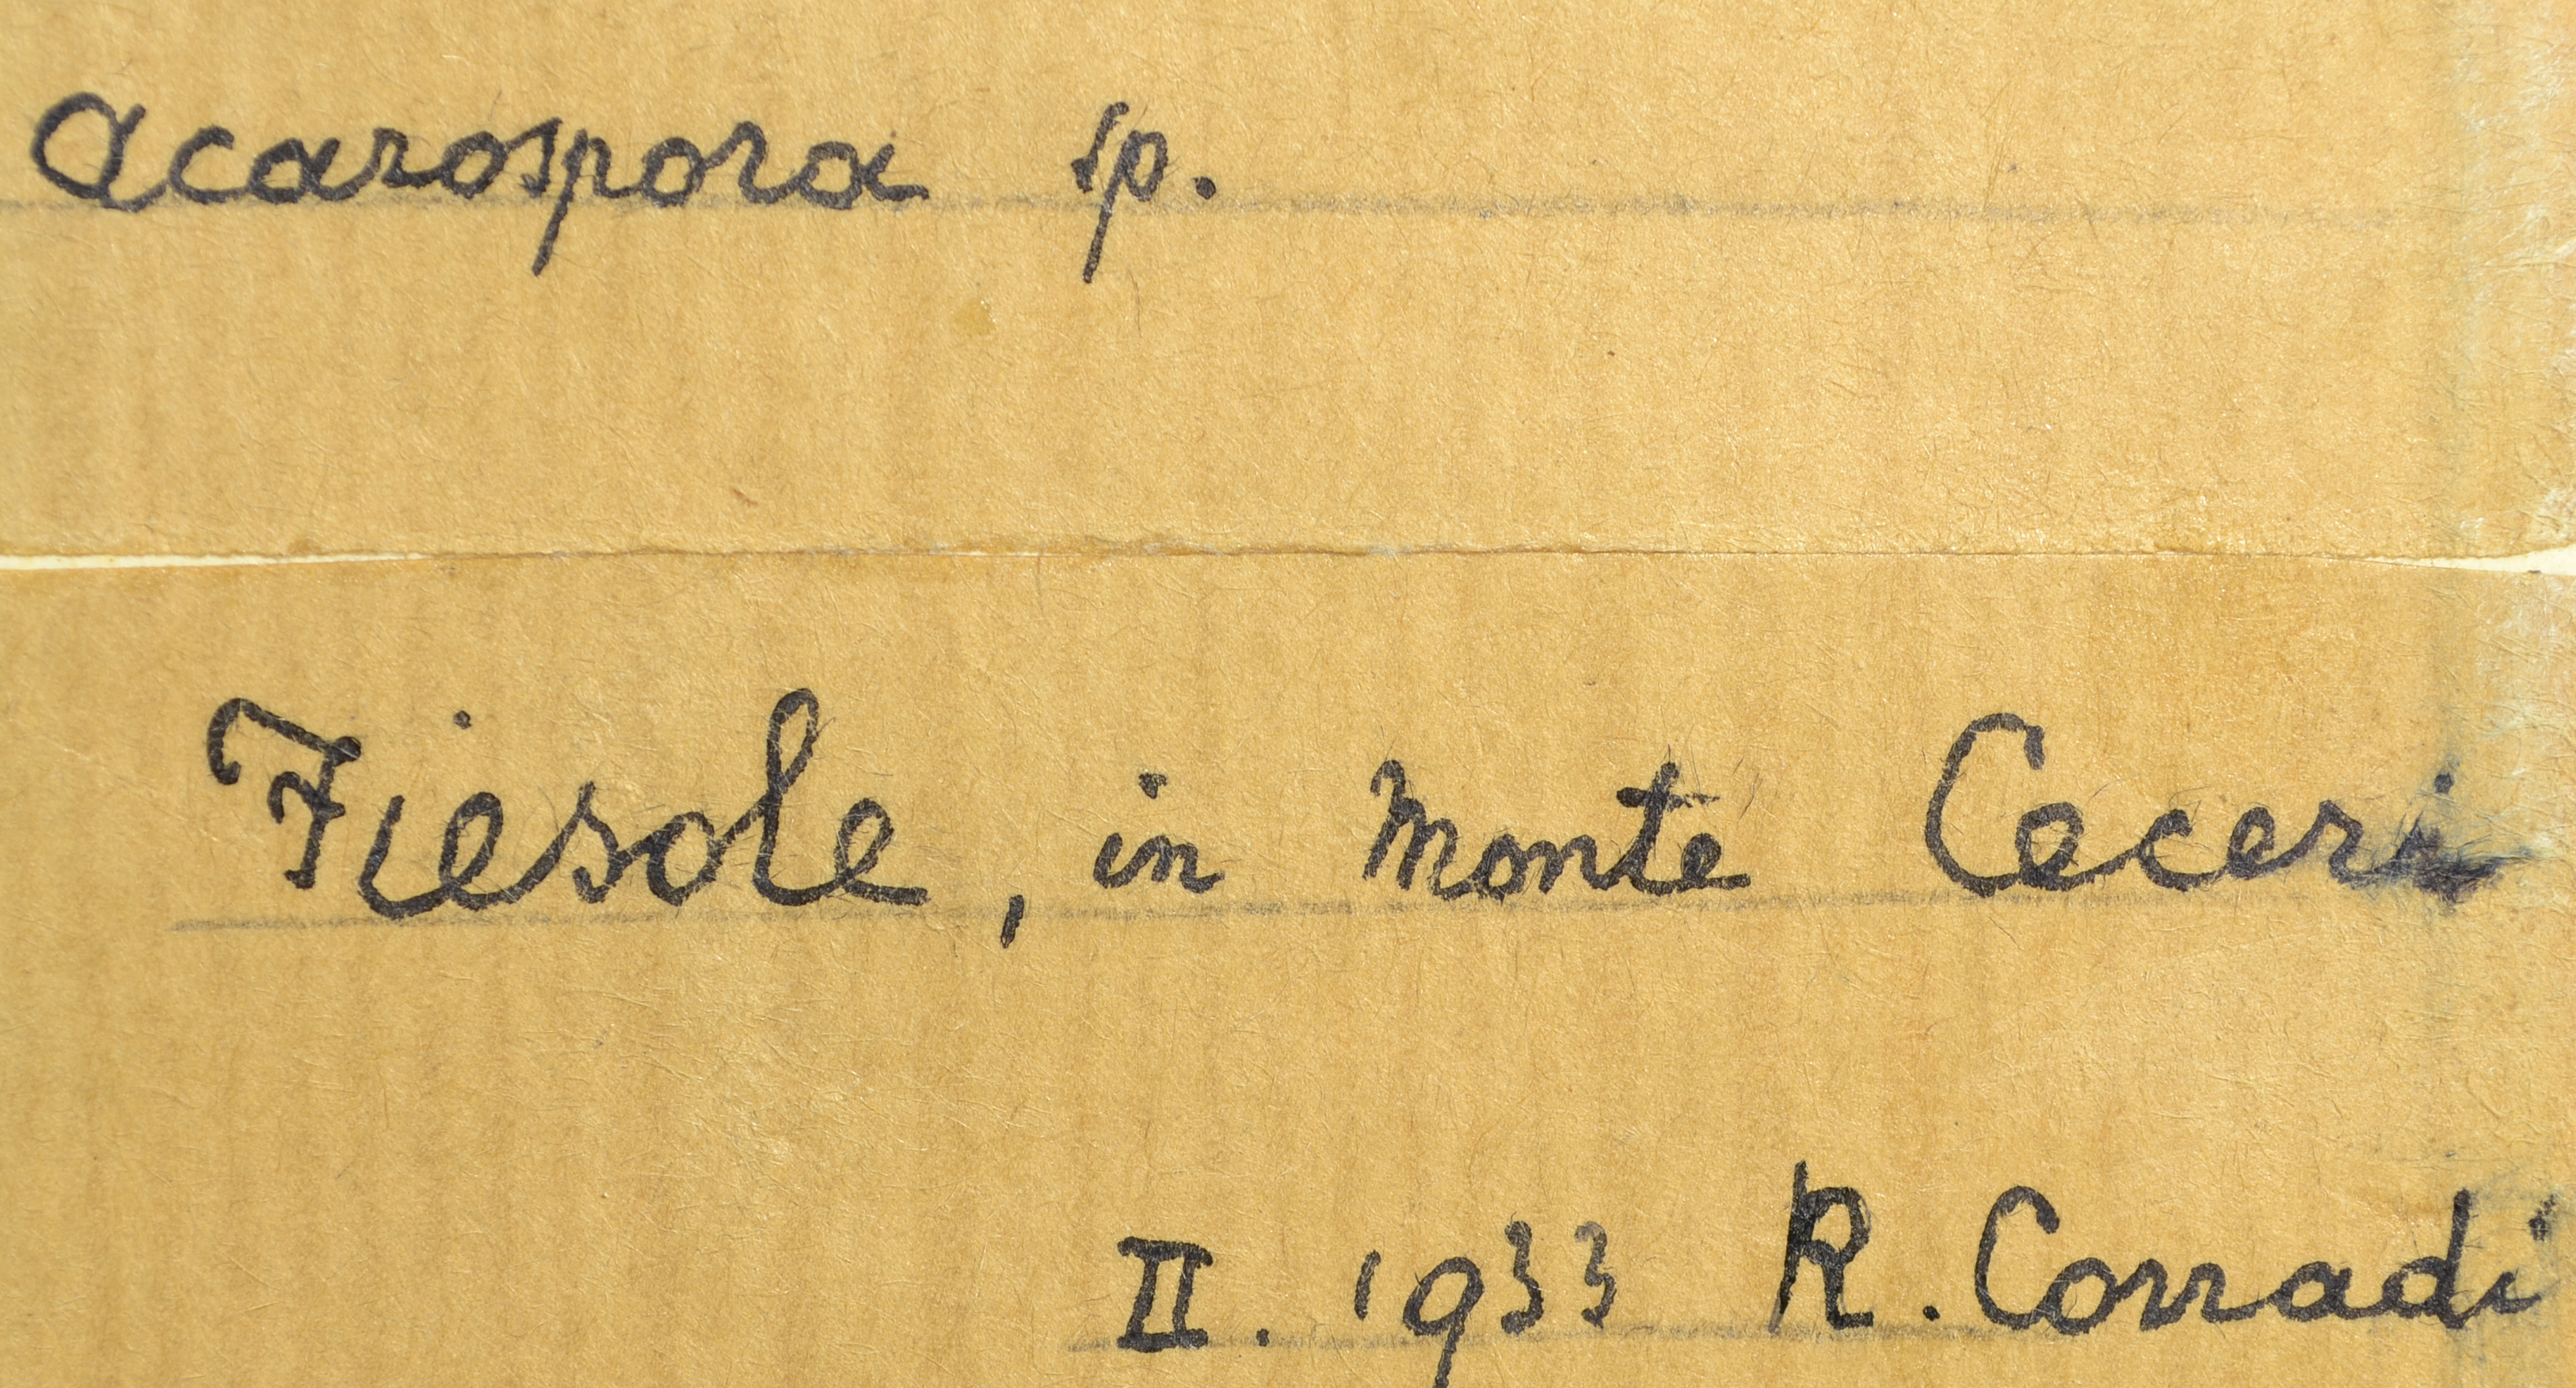 Acarospora sp.
Fiesole, in Monte Ceceri
II. 1933 R. Corradi